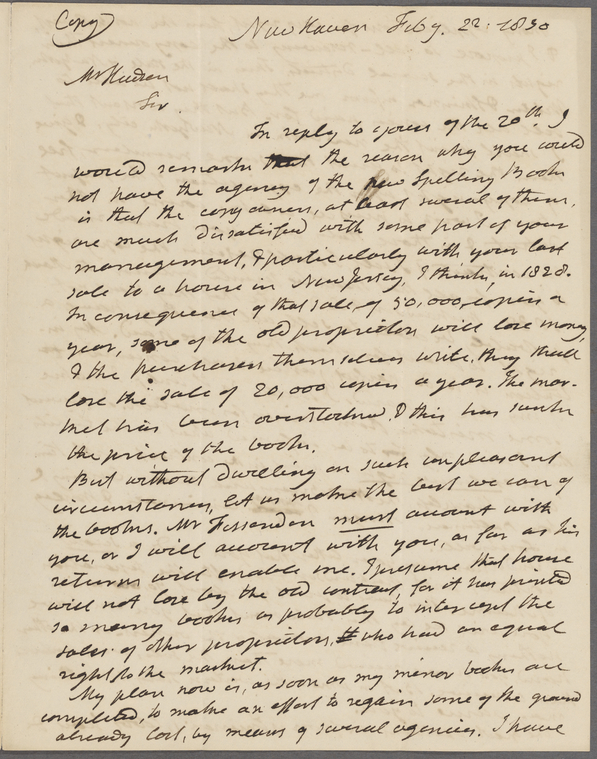 Copy
New Haven Feby. 22. 1830
Mr Hudson
Sir.
In reply to yours of the 20th. I
would remark the reason why you could
not have the agency of the new Spelling Book
is that the copy owners, at least several of them,
are much dissatisfied with some part of your
management, & particularly with your last
sale to a house in New Jersey, I think, in 1828.
In consequence of that sale, of 50,000 copies a
year, some of the old proprietors will lose money,
& the purchasers themselves write, they shall
lose the sale of 20,000 copies a year. The mar-
ket has been overstocked & this has sunk
the price of the books.
But without dwelling on such unpleasant
circumstances, let us make the best we can of
the books. Mr Fessenden must account with
you, or I will account with you, as far as his
returns will enable me. I presume that house
will not lose by the old contract, for it has printed
so many books as probably to intercept the
sales of other proprietors, who had an equal
right to the market.
My plan now is, as soon as my minor books are
completed, to make an effort to regain some of the ground
already lost, by means of several agencies. I have